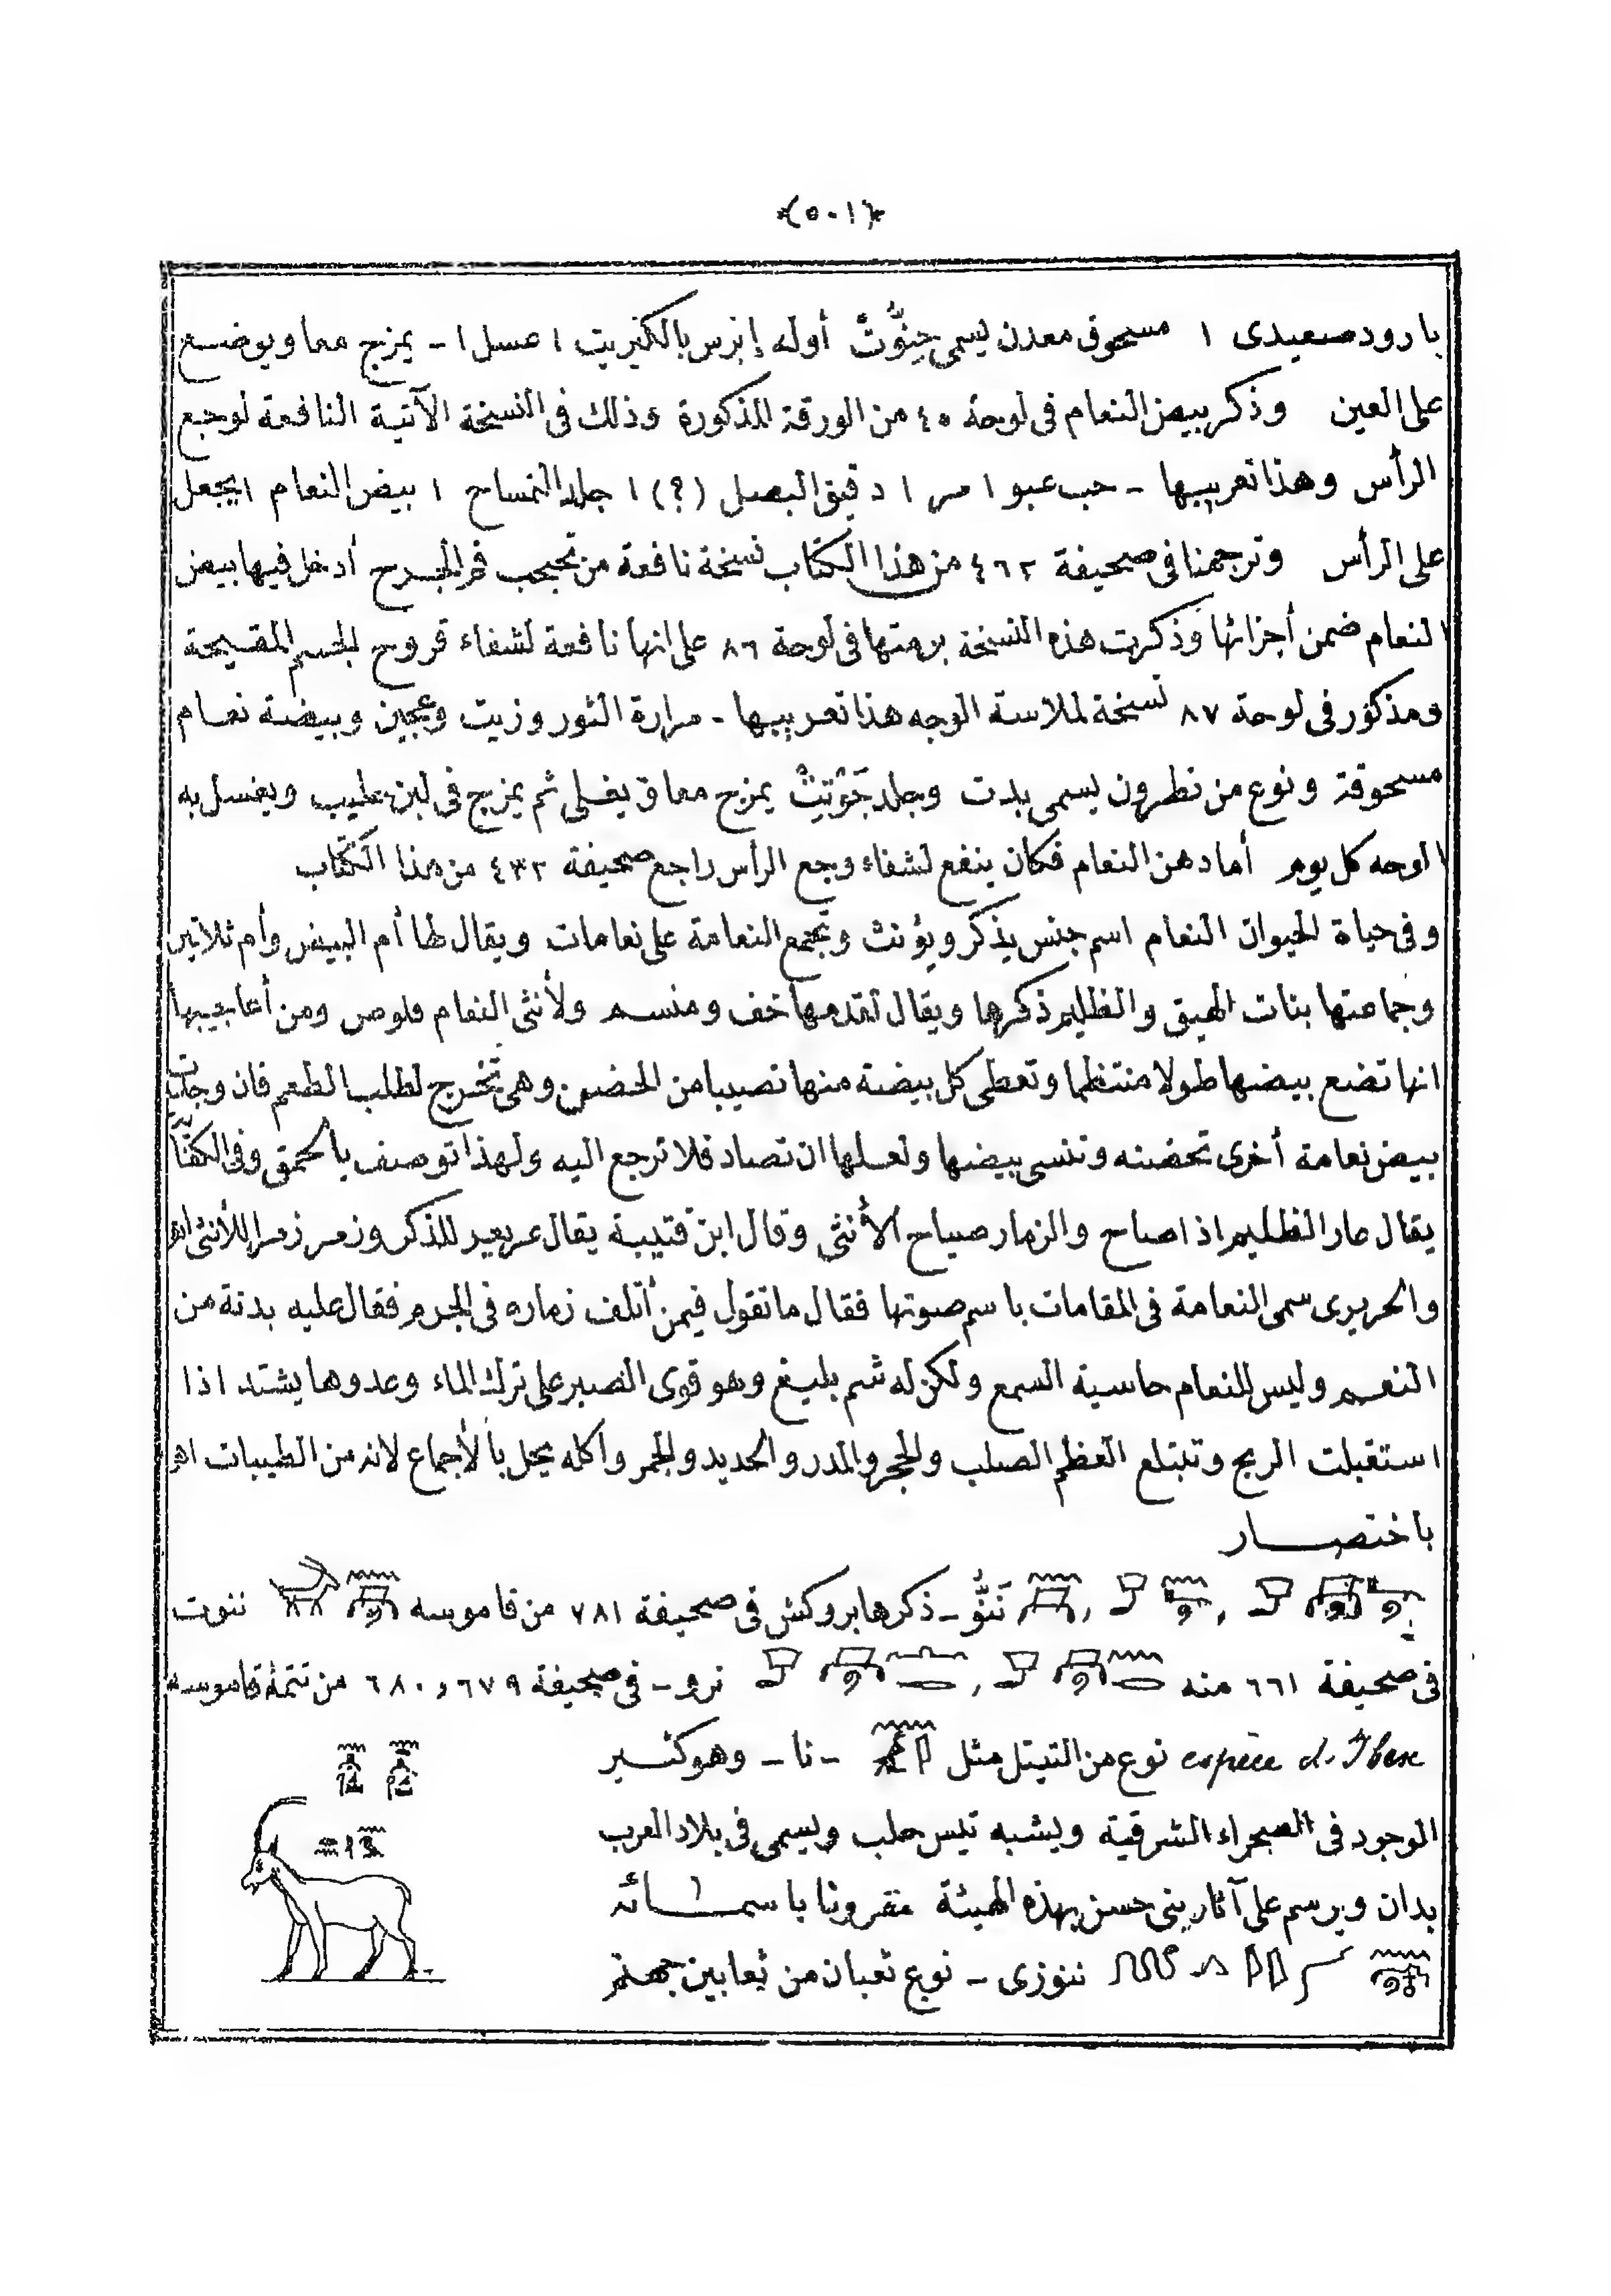 *(٥٠١)*
بارود صعيدى ١ مسحوق معدن يسمى حِنِتُّوتْ أوله إبرس بالكبريت ١ عسل ١ ـ يمزج معا ويوضع
على العين وذكر بيض النعام فى لوحة ٤٥ من الورقة المذكورة وذلك فى النسخة الآتية النافعة لوجع
الرأس وهذا تعريبها ـ حب عبو ١ مر ١ دقيق البصل (؟) ١ جلد التمساح ١ بيض النعام ١ يجعل
على الرأس وترجمنا فى صحيفة ٤٦٢ من هذا الكتاب نسخة نافعة من تحبحب فم الجرح أدخل فيها بيض
النعام ضمن أجزائها وذكرت هذه النسخة برمتها فى لوحة ٨٦ على انها نافعة لشفاء قروح الجسم المقيحة
ومذكور فى لوحة ٨٧ نسخة لملاسة الوجه هذا تعريبها ـ مرارة الثور وزيت وعجين وبيضة نعام
مسحوقة ونوع من نطرون يسمى بدت وجلد يمزج معا ويغلى ثم يمزج فى لبن حليب ويغسل به
الوجه كل يوم أما دهن النعام فكان ينفع لشفاء وجع الرأس راجع صحيفة ٤٣٢ من هذا الكتاب
وفى حياة الحيوان النعام اسم جنس يذكر ويؤنث وتجمع النعامة على نعامات ويقال لها أم البيض وأم ثلاثين
وجماعتها بنات الهيق والظليم ذكرها ويقال لقدمها خف ومنسم ولأنثى النعام قلوص ومن أعاجيبها
انها تضع بيضها طولا منتظما وتعطى كل بيضة منها نصيبا من الحضن وهى تخرج لطلب الطعم فان وجدت
بيض نعامة أخرى تحضنه وتنسى بيضها ولعلها ان تصاد فلا ترجع اليه ولهذا توصف بالحمق وفى الكفاية
يقال عار الظليم اذا صاح والزمار صياح الأنثى وقال ابن قتيبة يقال عر يعر للذكر وزمر زمرا للأنثى اهـ
والحريرى سمى النعامة فى المقامات باسم صوتها فقال ما تقول فيمن أتلف زماره فى الحرم فقال عليه بدنة من
النعم وليس للنعام حاسية السمع ولكن له شم بليغ وهو قوى الصبر على ترك الماء وعدوها يشتد اذا
استقبلت الريح وتبتلع العظم الصلب والحجر والمدر والحديد والجمر وأكله يحل بالأجماع لانه من الطيبات اهـ
باختصار
نَنَوُّ ـ ذكرها بروكش فى صحيفة ٧٨١ من قاموسه ننوت
فى صحيفة ٦٦١ منه نرو ـ فى صحيفة ٦٧٩ و ٦٨٠ من تتمة قاموسه
espèce d'Ibex نوع من التيتل مثل ـ نا ـ وهو كثير
الوجود فى الصحراء الشرقية ويشبه تيس حلب ويسمى فى بلاد العرب
بدان ويرسم على آثار بنى حسن بهذه الهيئة مقرونا باسمائه
ننوزى ـ نوع ثعبان من ثعابين جهنم